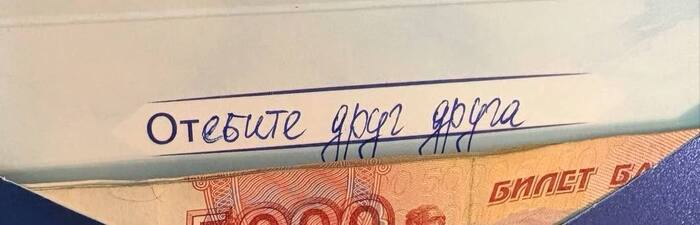 Отебите друг друга
БИЛЕТ